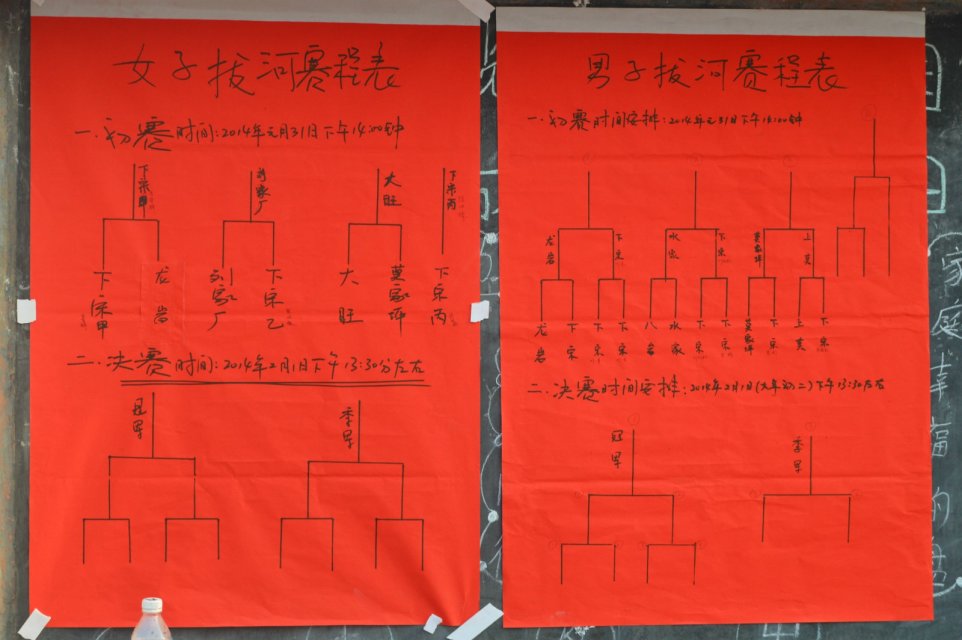 女子拔河赛程表
一.初赛时间:2014年元月31日下午14:00钟
下宋甲
刘家厂
大旺
下宋丙
下宋甲
龙岩
刘家厂
下宋乙
大旺
莫家坪
下宋丙
二.决赛时间:2014年2月1日下午13:30分左右
冠军
季军
男子拔河赛程表
一.初赛时间安排:2014年元月31日下午14:00钟
龙岩
下宋
水家
下宋
莫家坪
上莫
龙岩
下宋
下宋
下宋
八岩
水家
下宋
下宋
莫家坪
下宋
上莫
下宋
二.决赛时间安排:2014年2月1日(大年初二)下午13:30左右
冠军
季军
家庭幸福的